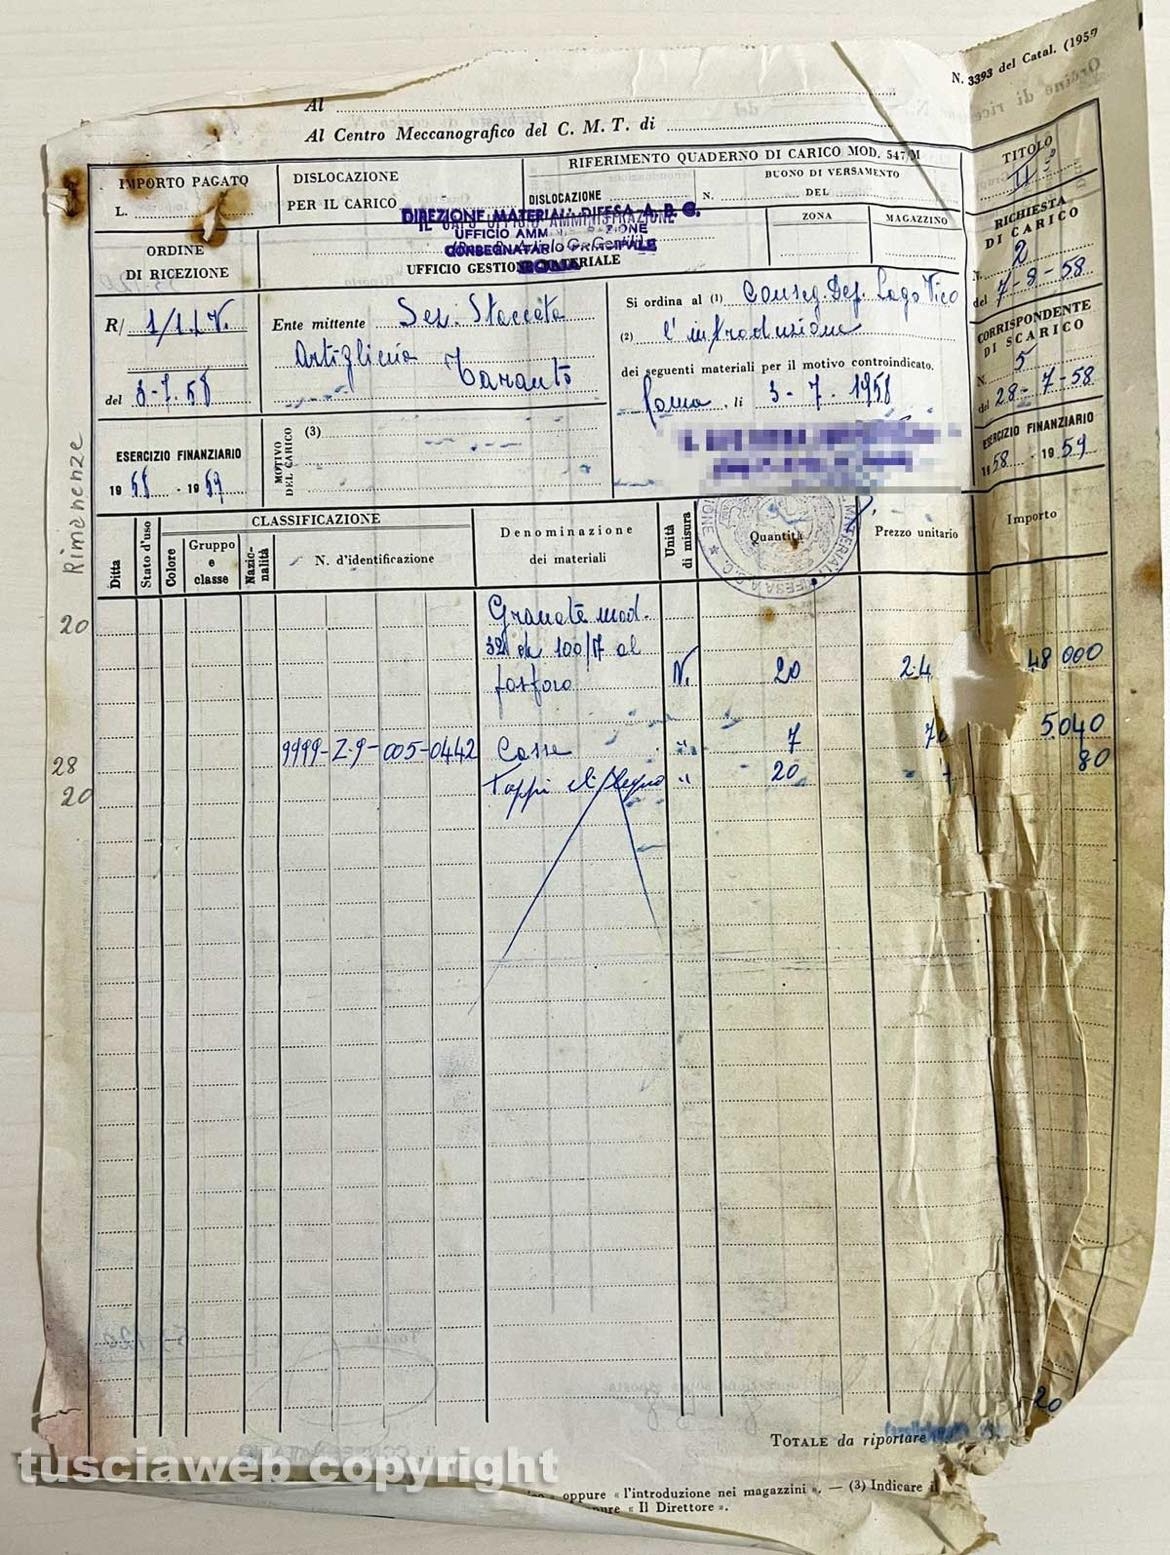 N. 3393 del Catal. (1959
Al
Al Centro Meccanografico del C. M. T. di
IMPORTO PAGATO
L.
DISLOCAZIONE
PER IL CARICO
RIFERIMENTO QUADERNO DI CARICO MOD. 547/M
DISLOCAZIONE
N.
BUONO DI VERSAMENTO
DEL
ZONA
MAGAZZINO
TITOLO
II
DIREZIONE MATERIALI DIFESA A. B. C.
IL CAPO UFFICIO AMMINISTRAZIONE
UFFICIO AMM
CONSEGNATARIO PRINCIPALE
ROMA
UFFICIO GESTIONE MATERIALE
ORDINE
DI RICEZIONE
R/ 1/1./V.
del 3-7.58
Ente mittente Sez. Staccata
Artiglieria Taranto
Si ordina al (1) Conseg. Def. Lago Vico
(2) l'introduzione
dei seguenti materiali per il motivo controindicato.
Roma, li 3-7.1958
RICHIESTA
DI CARICO
N. 2
del 7-8-58
CORRISPONDENTE
DI SCARICO
N. 5
del 28-7-58
ESERCIZIO FINANZIARIO
1958 - 1959
ESERCIZIO FINANZIARIO
19 - 19
MOTIVO
DEL CARICO
(3)
Rimanenze
Ditta
Stato d'uso
CLASSIFICAZIONE
Colore
Gruppo
e
classe
Nazio-
nalità
N. d'identificazione
Denominazione
dei materiali
Unità
di misura
Quantità
Prezzo unitario
Importo
20
Granate mod.
32 da 100/17 al
fosforo N. 20 24 48 000
28 9999-Z9-005-0442 Casse " 7 5.040
20 Tappi di legno " 20 80
20
TOTALE da riportare
oppure « l'introduzione nei magazzini ». — (3) Indicare il
pure « Il Direttore ».
tusciaweb copyright